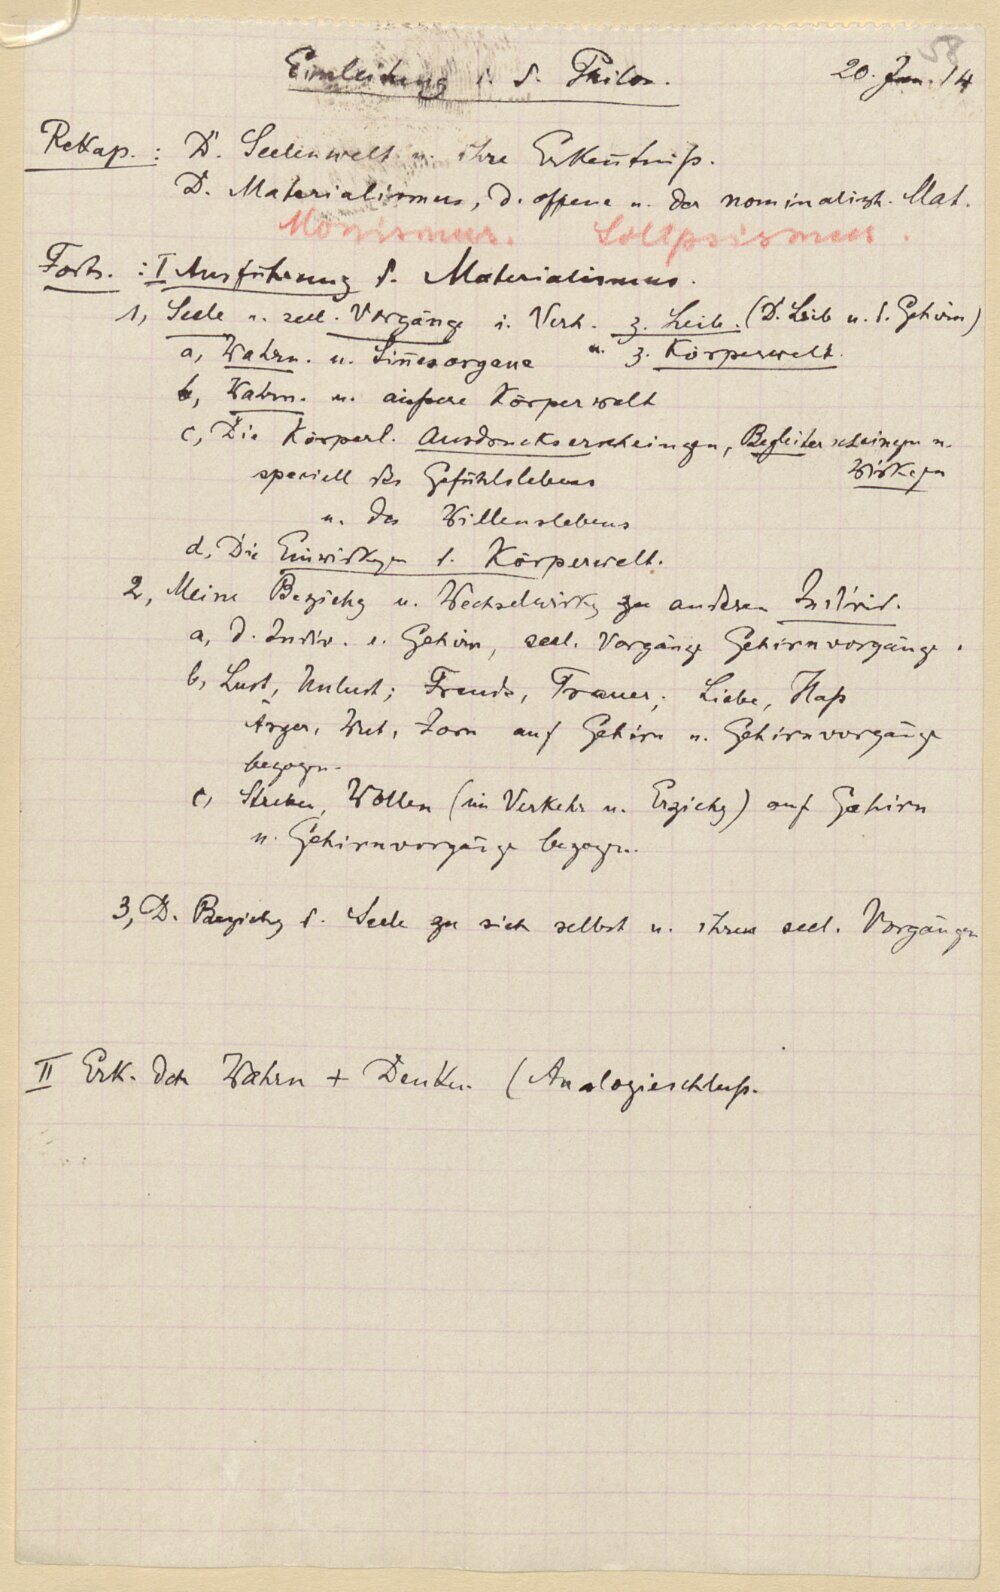 58
Einleitung i. d. Philos. 20. Jan. 14
Rekap. : D. Seelenwelt u. ihre Erkentniß.
D. Materialismus, d. offene u. der nominalist. Mat.
Monismus. Solipsismus.
Forts. : I Ausführung d. Materialismus.
1, Seele u. seel. Vorgänge i. Verh. z. Leib. (D. Leib u. d. Gehirn)
a, Wahrn. u. Sinesorgane u. z. Körperwelt.
b, Wahrn. u. äußere Körperwelt
c, Die Körperl. Ausdruckserscheingen, Begleiterscheingen u.
speciell des Gefühlslebens Wirkgen
u. des Willenslebens
d, Die Einwirkgen d. Körperwelt.
2, Meine Beziehg u. Wechselwirkg zu anderen Individ.
a, D. Indiv. e. Gehirn, seel. Vorgänge Gehirnvorgänge.
b, Lust, Unlust; Freude, Trauer; Liebe, Haß
Ärger, Wut, Zorn auf Gehirn u. Gehirnvorgänge
bezogen.
c, Streben, Wollen (im Verkehr u. Erziehg) auf Gehirn
u. Gehirnvorgänge bezogen.
3, D. Beziehg d. Seele zu sich selbst u. ihren seel. Vorgängen
II Erk. dch Wahrn + Denken. (Analogieschluß.